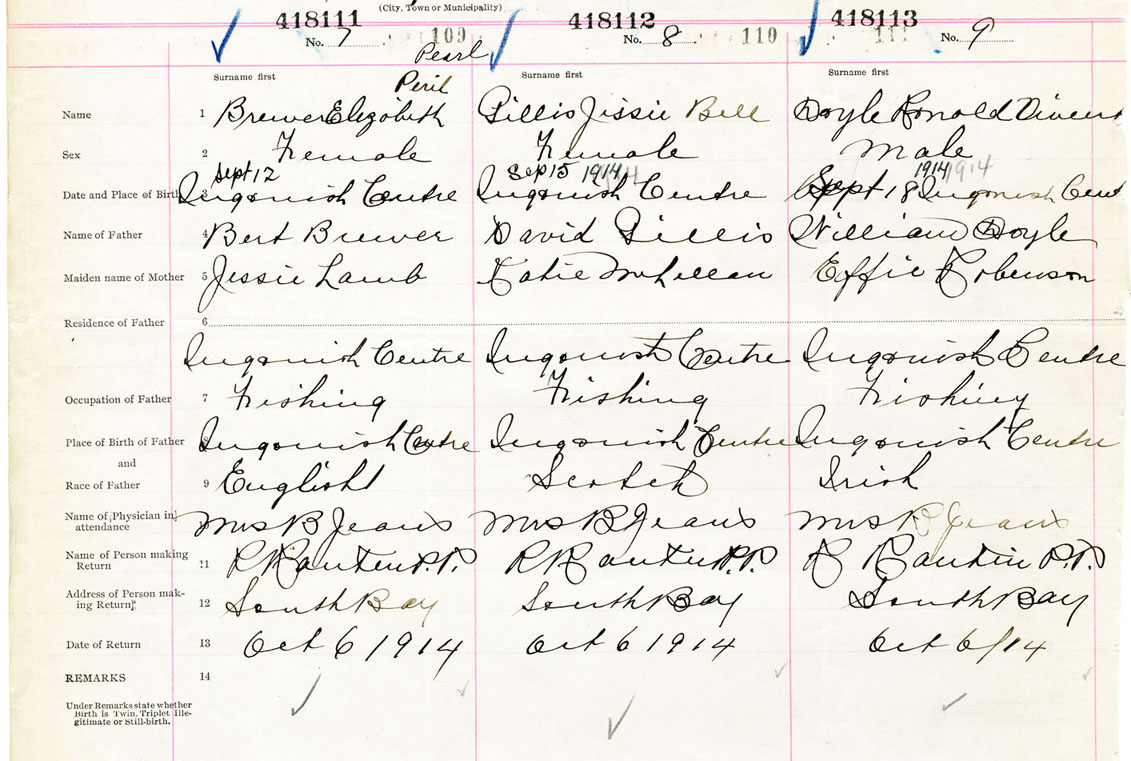 (City, Town or Municipality)
418111 418112 418113
No. 7 109 No. 8 110 No. 9
Pearl
Surname first Surname first Surname first
Peril
Name 1 Brewer Elizabeth Gillis Jessie Bell Doyle Ronald Vincent
Sex 2 Female Female Male
Sept 12 Sep 15 1914 1914
Date and Place of Birth 3 Ingonish Centre Ingonish Centre Sept 18 Ingonish Cent
Name of Father 4 Bert Brewer David Gillis William Doyle
Maiden name of Mother 5 Jessie Lamb Katie McLellan Effie Robenson
Residence of Father 6
Ingonish Centre Ingonish Centre Ingonish Centre
Occupation of Father 7 Fishing Fishing Fishing
Place of Birth of Father 8 Ingonish Centre Ingonish Centre Ingonish Centre
and
Race of Father 9 English Scotch Irish
Name of Physician in
attendance Mrs B Jeans Mrs B Jeans Mrs B Jeans
Name of Person making
Return 11
Address of Person mak-
ing Return 12 South Bay South Bay South Bay
Date of Return 13 Oct 6 1914 Oct 6 1914 Oct 6/14
REMARKS 14
Under Remarks state whether
Birth is Twin, Triplet Ille-
gitimate or Still-birth.